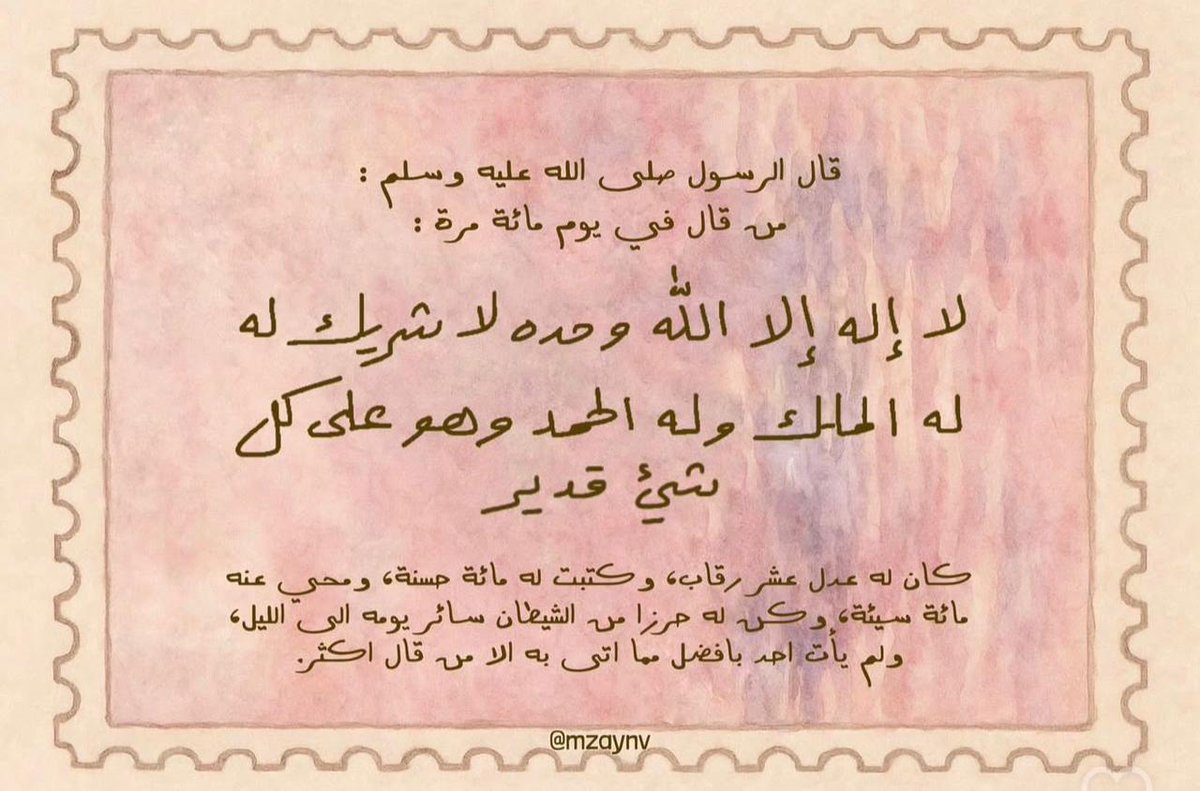 قال الرسول صلى الله عليه وسلم :
من قال في يوم مائة مرة :
لا إله إلا اللّٰه وحده لا شريك له
له الملك وله الحمد وهو على كل
شيئ قدير
كان له عدل عشر رقاب، وكتبت له مائة حسنة، ومحي عنه
مائة سيئة، وكن له حرزا من الشيطان سائر يومه الى الليل،
ولم يأت احد بافضل مما اتى به الا من قال اكثر.
@mzaynv